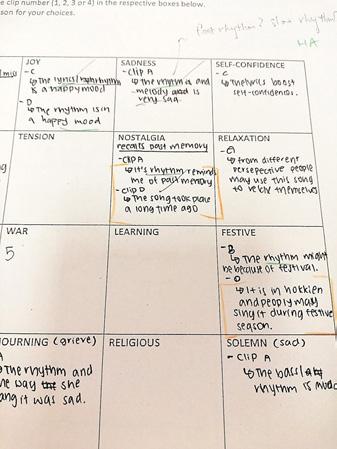 e clip number (1, 2, 3 or 4) in the respective boxes below.
son for your choices.
Fast rhythm? Slow rhythm
HA
JOY
- C
↳ The lyrics/
is a happy mood
- D
↳ The rhythm is in
a happy mood
SADNESS
- Clip A
↳ The rhythm is and
melody and is
very sad.
SELF-CONFIDENCE
- C
↳ The lyrics boost
self-confidence.
TENSION
NOSTALGIA
recalls past memory
- Clip A
↳ It's rhythm reminds
me of past memory
- Clip D
↳ The song took place
a long time ago
RELAXATION
↳ From different
persepective people
may use this song
to relax themselves
WAR
5
LEARNING
FESTIVE
- B
↳ The rhythm might
be because of festival.
- D
↳ It is in hokkien
and people may
sing it during festive
season.
OURNING (grieve)
A
The rhythm and
he way the she
ang it was sad.
RELIGIOUS
SOLEMN (sad)
- Clip A
↳ The bass/
rhythm is